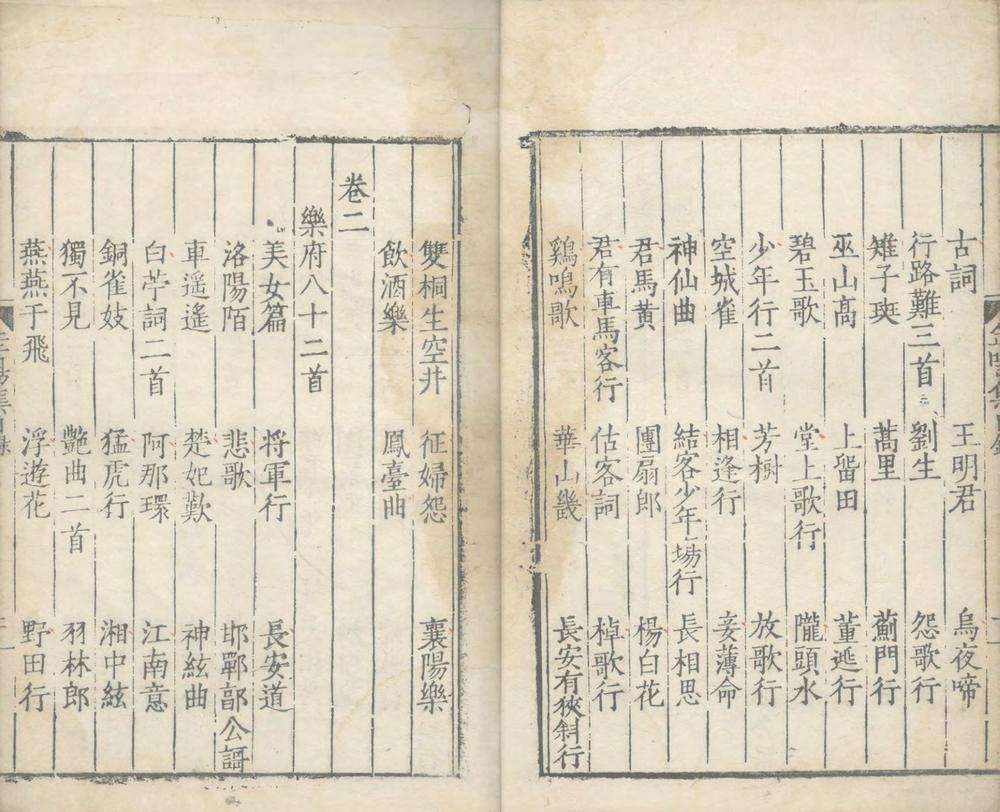 古詞 王明君 烏夜啼
行路難三首 劉生 怨歌行
雉子斑 蒿里 薊門行
巫山高 上留田 董逃行
碧玉歌 堂上歌行 隴頭水
少年行二首 芳樹 放歌行
空城雀 相逢行 妾薄命
神仙曲 結客少年場行 長相思
君馬黃 團扇郎 楊白花
君有車馬客行 估客詞 棹歌行
鷄鳴歌 華山畿 長安有狹斜行
雙桐生空井 征婦怨 襄陽樂
飲酒樂 鳳臺曲
卷二
樂府八十二首
美女篇 将軍行 長安道
洛陽陌 悲歌 邯鄲郭公謌
車遥遥 楚妃歎 神絃曲
白苧詞二首 阿那瓌 江南意
銅雀妓 猛虎行 湘中絃
獨不見 艷曲二首 羽林郎
燕燕于飛 浮遊花 野田行